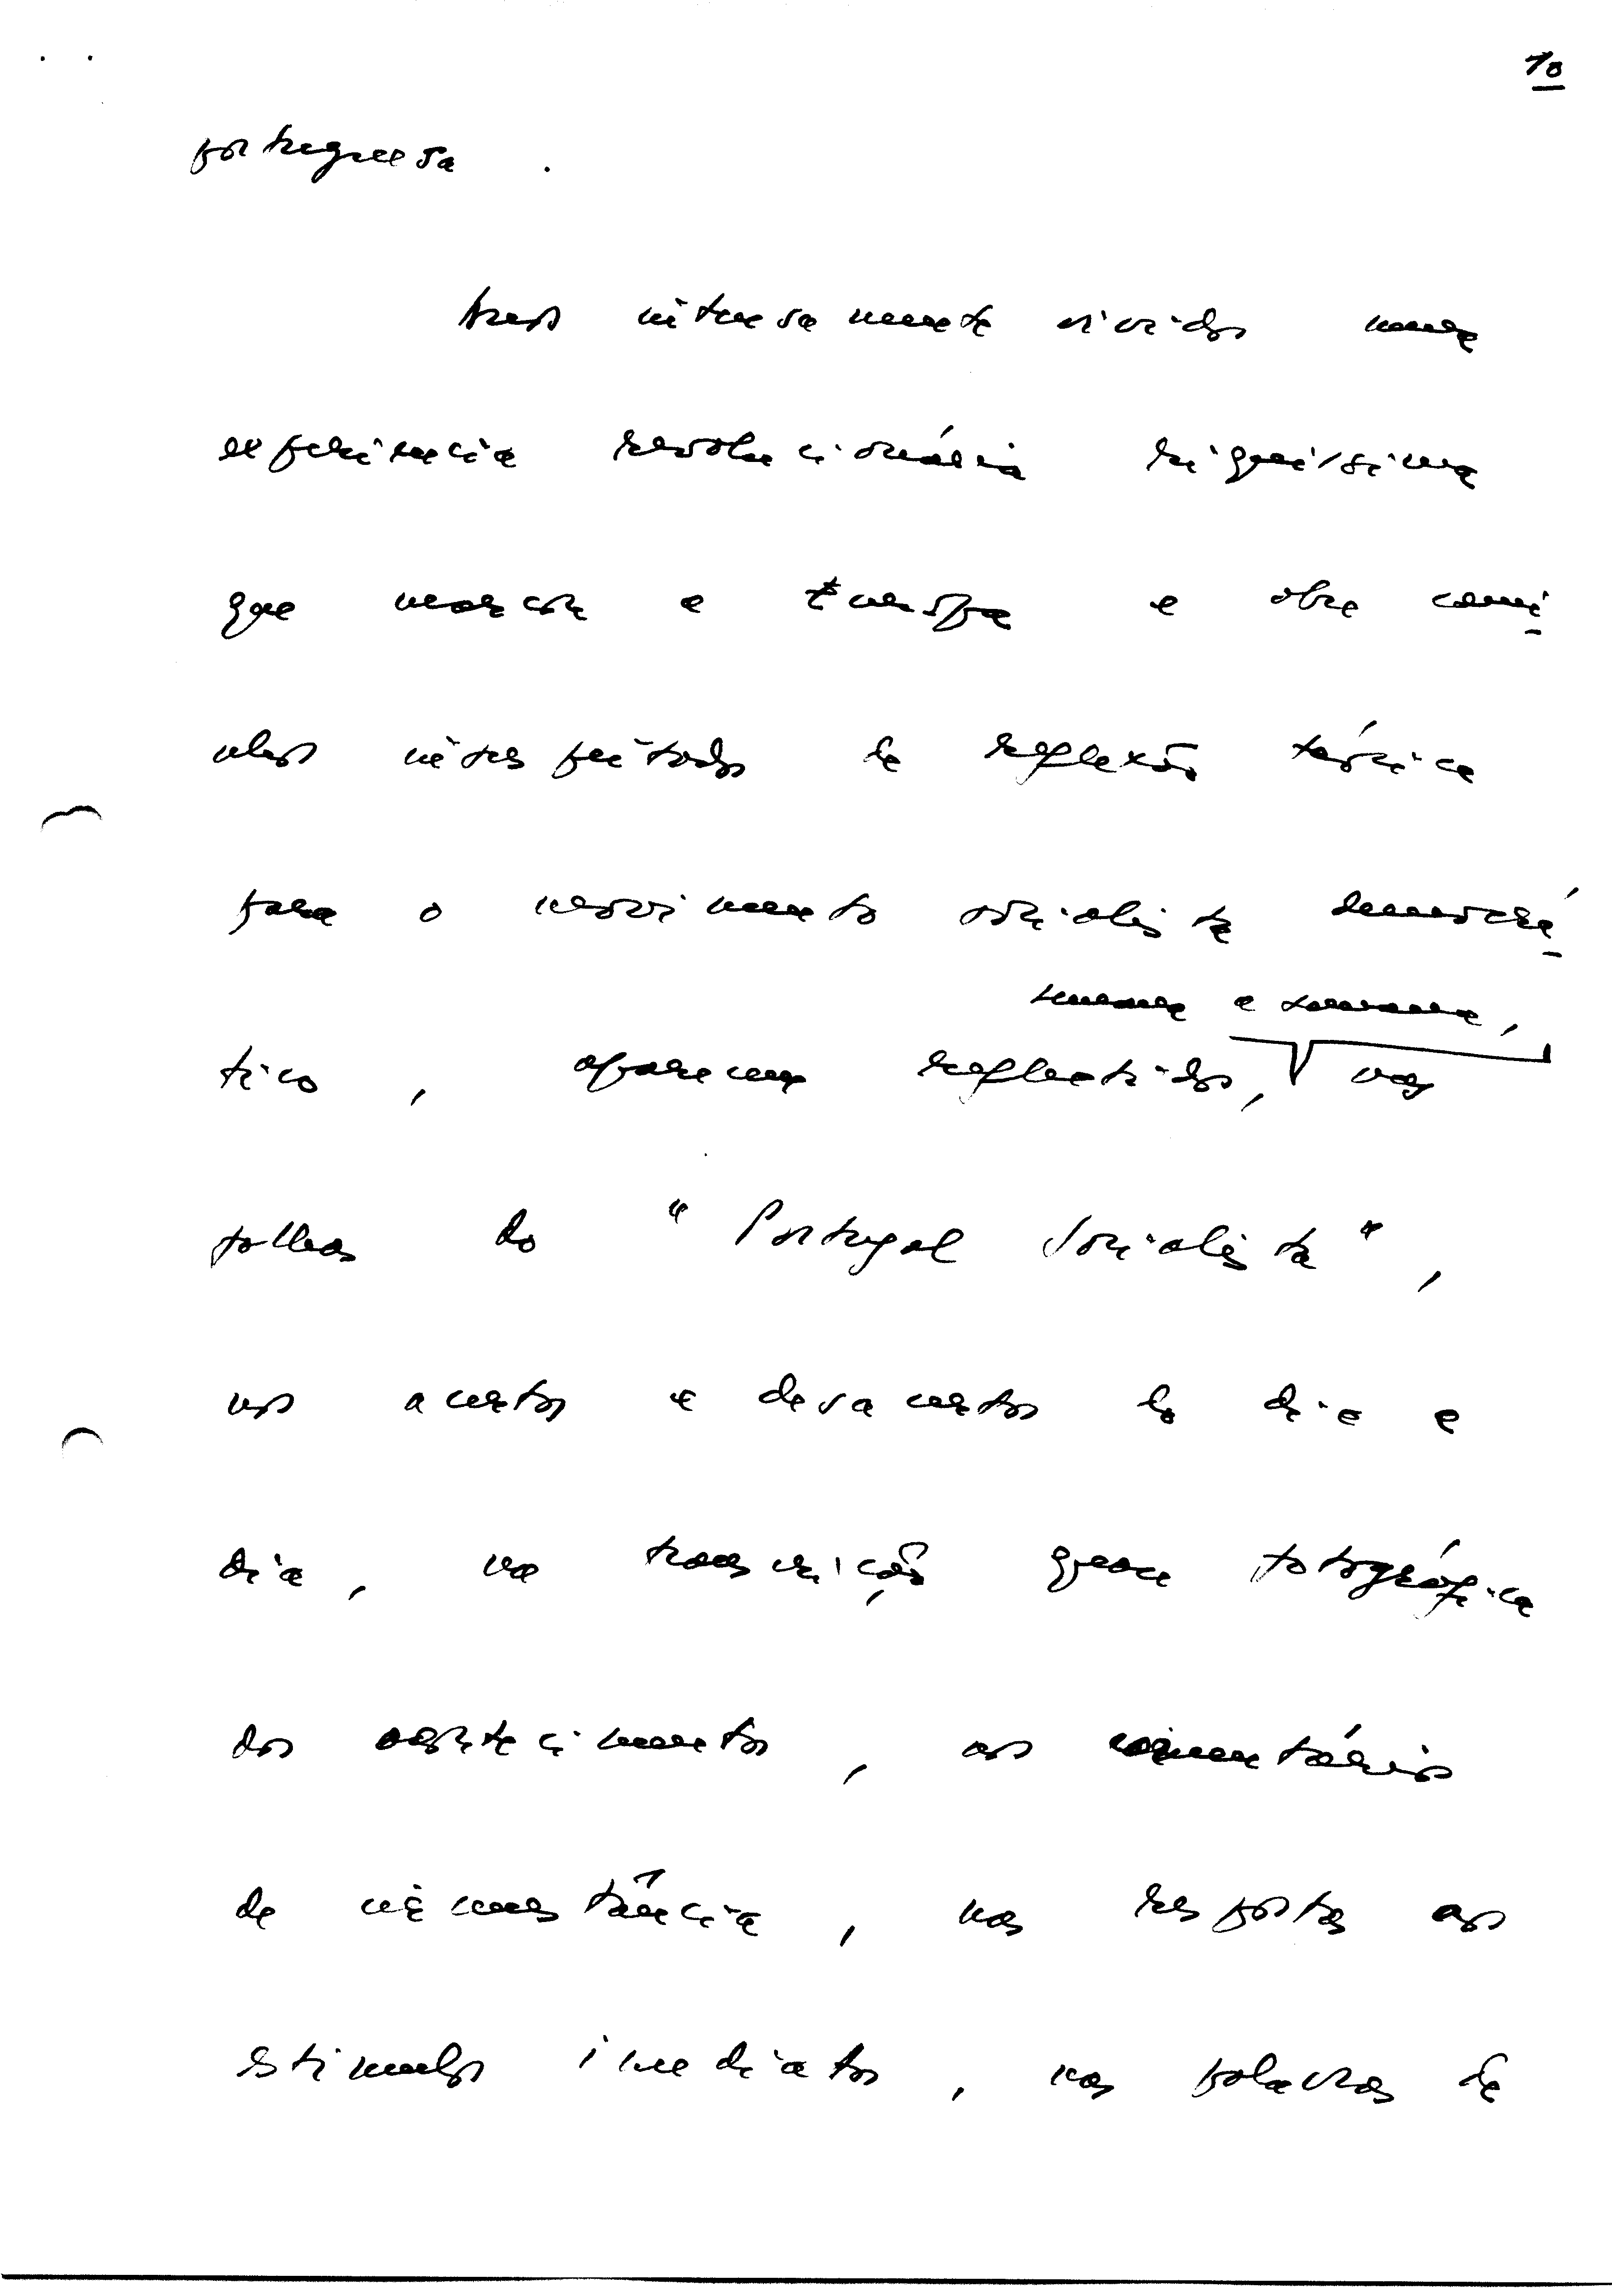 10
portuguesa.
Anos intensamente vividos numa
experiência revolucionária riquíssima
que marcou a Europa e abre cami
nhos insuspeitados de reflexão teórica
para o movimento socialista democrá
semana a semana,
tico, aparecem reflectidos, nas
folhas do "Portugal Socialista",
nos acertos e desacertos do dia a
dia, na transcrição quase fotográfica
dos acontecimentos, nos comentários
de circunstância, nas respostas aos
estímulos imediatos, nas palavras de